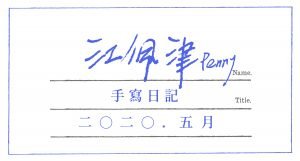 江佩津 Penny Name.
手寫日記 Title.
二〇二〇．五月